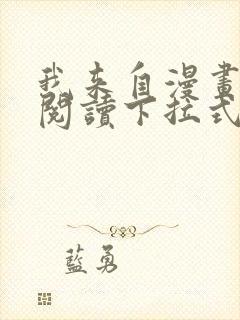 我来自漫畫
閱讀下拉式
藍勇